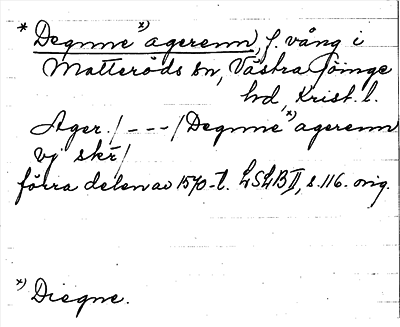 * Degnne x) agerenn, f. vång i
Matteröds sn, Västra Göinge
hd, Krist. l.
Ager. / - - - / Degnne x) agerenn
vj skr̄ /
förra delen av 1570-t. LSLB II, s. 116. orig.
x) Diegne.